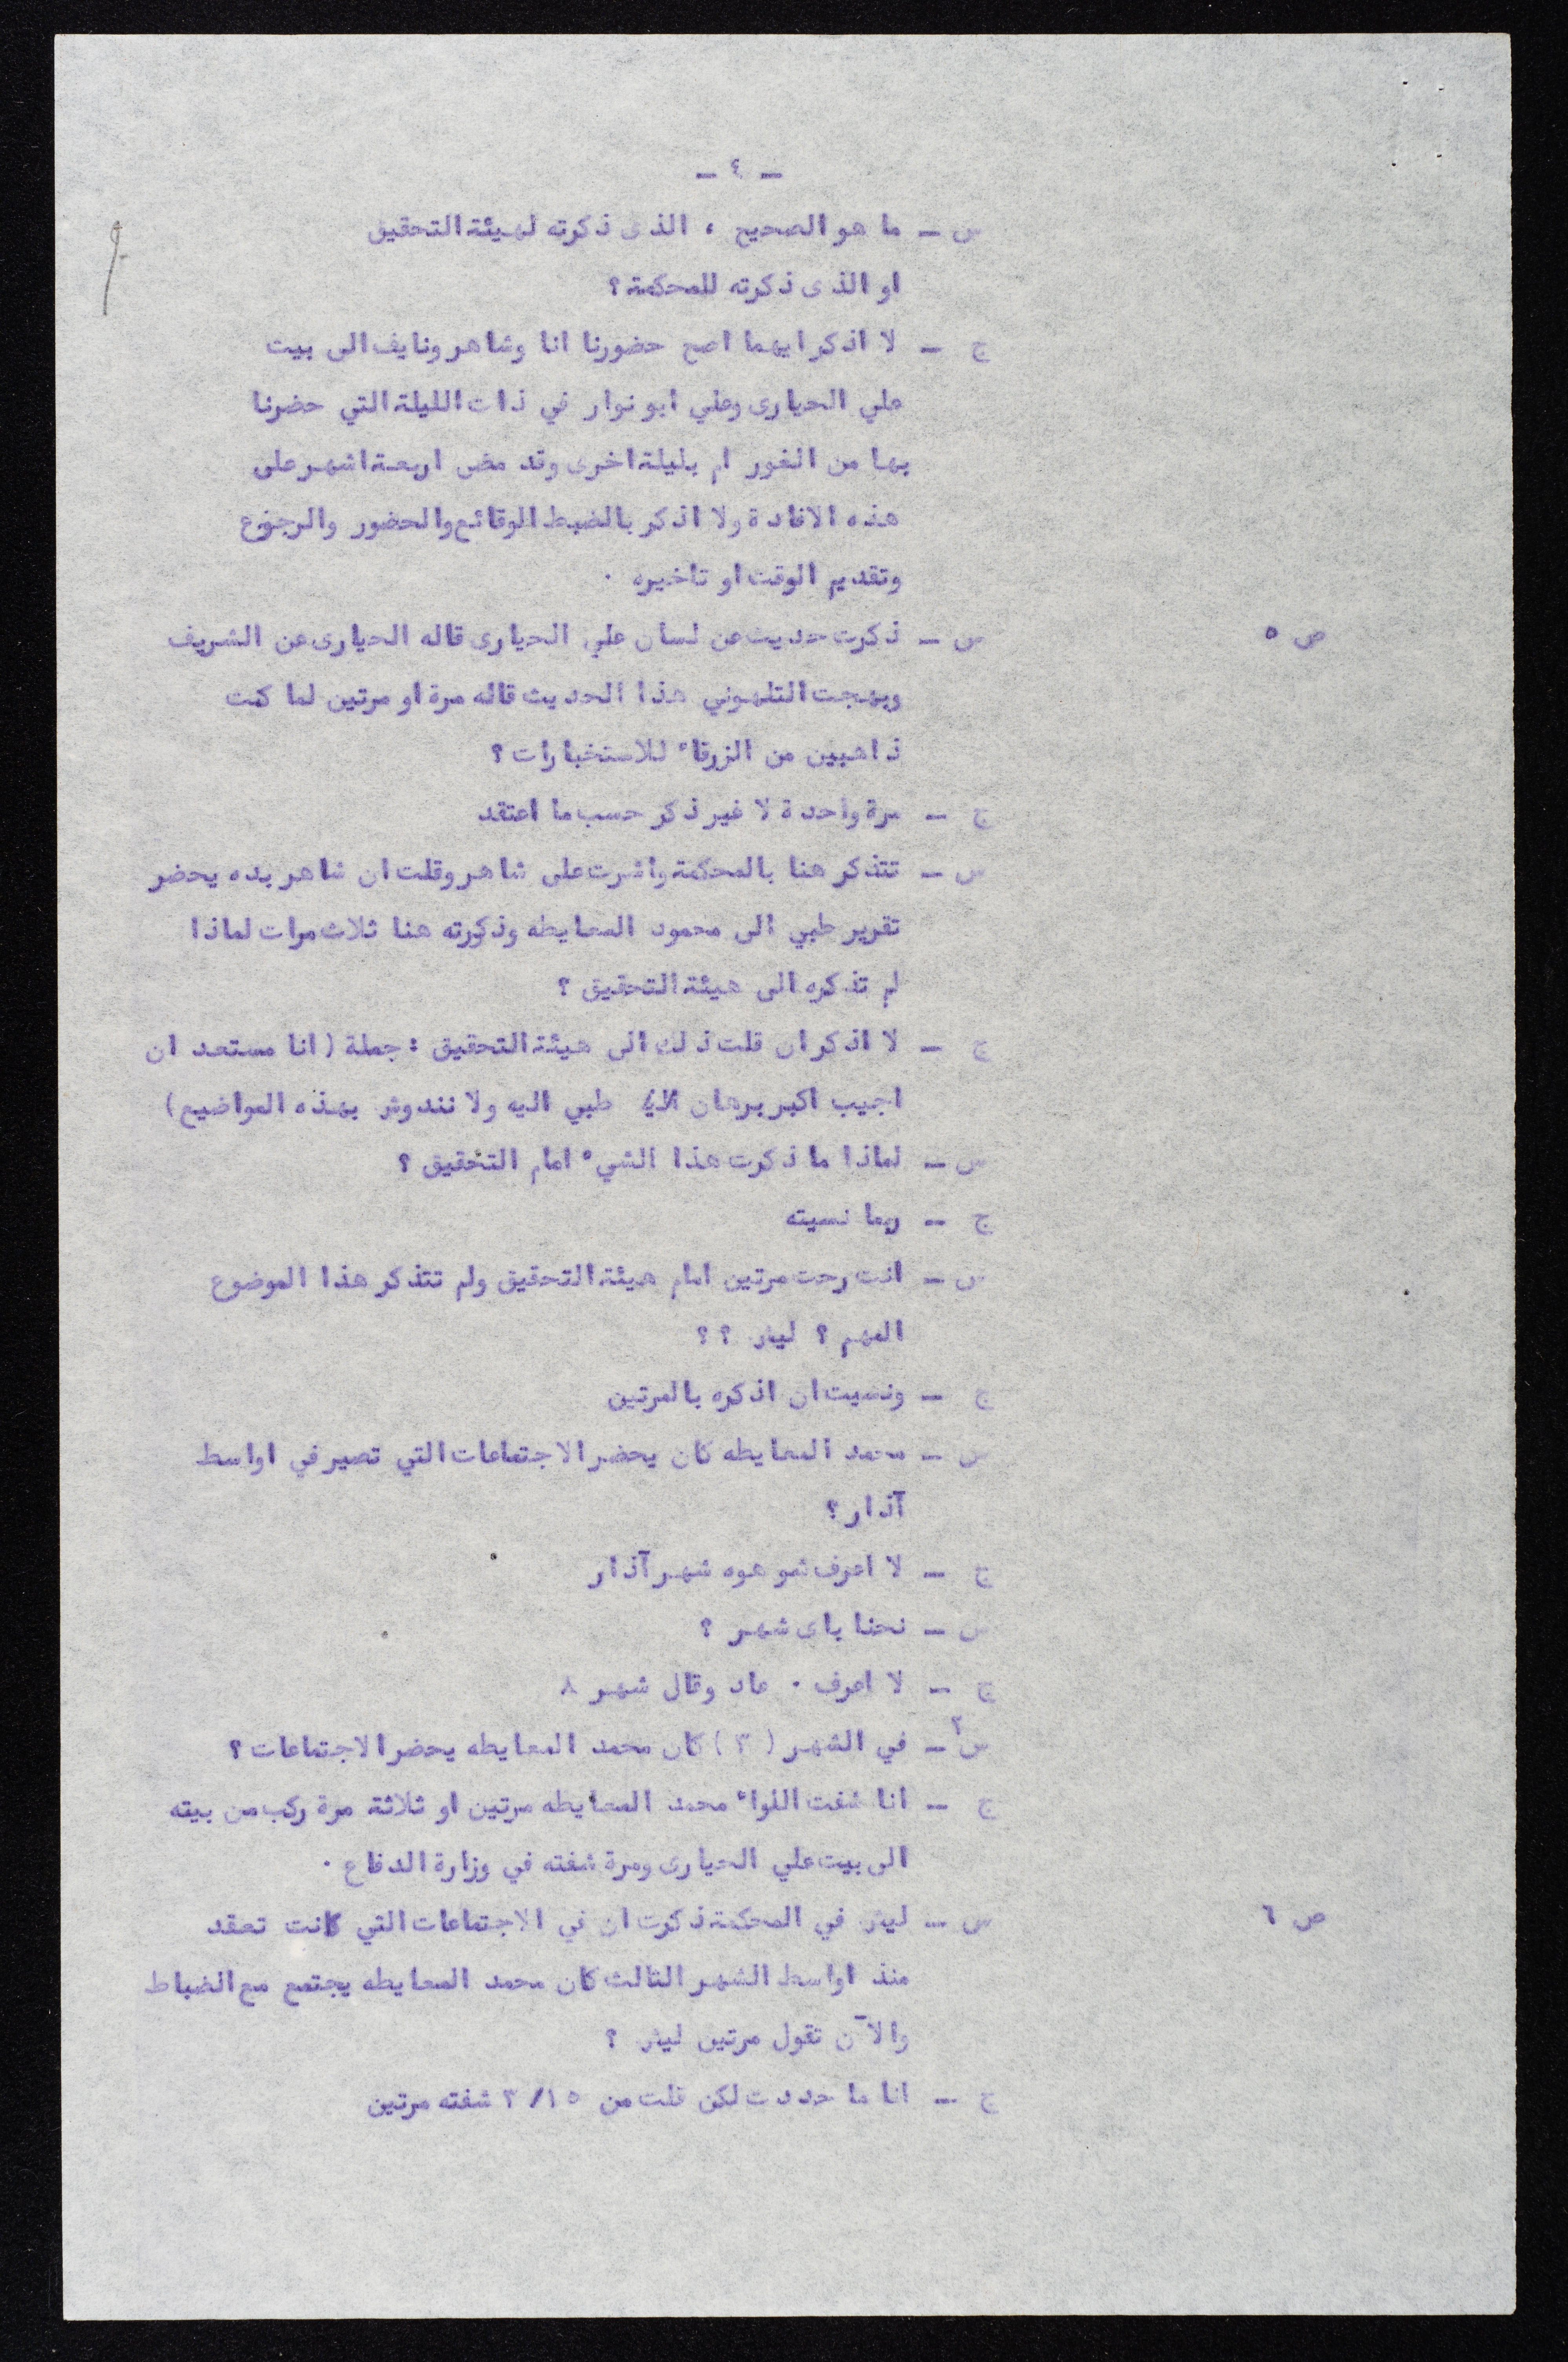 - ٤ -
س - ما هو الصحيح ، الذى ذكرته لهيئة التحقيق
او الذى ذكرته للمحكمة ؟
ج - لا اذكر ايهما اصح حضورنا انا وشاهر ونايف الى بيت
علي الحيارى وعلي ابو نوار في ذات الليلة التي حضرنا
بها من الغور ام بليلة اخرى وقد مضى اربعة اشهر على
هذه الافادة ولا اذكر بالضبط الوقائع والحضور والرجوع
وتقديم الوقت او تاخيره ٠
ص ٥ س - ذكرت حديث عن لسان علي الحيارى قاله الحيارى عن الشريف
وبهجت التلهوني هذا الحديث قاله مرة او مرتين لما كنت
ذاهبين من الزرقاء للاستخبارات ؟
ج - مرة واحدة لا غير ذكر حسب ما اعتقد
س - تتذكر هنا بالمحكمة واشرت على شاهر وقلت ان شاهر بده يحضر
تقرير طبي الى محمود المعايطه وذكرته هنا ثلاث مرات لماذا
لم تذكره الى هيئة التحقيق ؟
ج - لا اذكر ان قلت ذلك الى هيئة التحقيق : جملة ( انا مستعد ان
اجيب اكبر برهان طبي اليه ولا نندوش بهذه المواضيع )
س - لماذا ما ذكرت هذا الشيء امام التحقيق ؟
ج - ربما نسيته
س - انت رحت مرتين امام هيئة التحقيق ولم تتذكر هذا الموضوع
المهم ؟ ليش ؟ ؟
ج - ونسيت ان اذكره بالمرتين
س - محمد المعايطه كان يحضر الاجتماعات التي تصير في اواسط
آذار ؟
ج - لا اعرف شو هوه شهر آذار
س - نحنا باى شهر ؟
ج - لا اعرف ٠ عاد وقال شهر ٨
س٢ - في الشهر ( ٣ ) كان محمد المعايطه يحضر الاجتماعات ؟
ج - انا شفت اللواء محمد المعايطه مرتين او ثلاثة مرة ركب من بيته
الى بيت علي الحيارى ومرة شفته في وزارة الدفاع ٠
ص ٦ س - ليش في المحكمة ذكرت ان في الاجتماعات التي كانت تعقد
منذ اواسط الشهر الثالث كان محمد المعايطه يجتمع مع الضباط
والآن تقول مرتين ليش ؟
ج - انا ما حددت لكن قلت من ١٥/ ٣ شفته مرتين